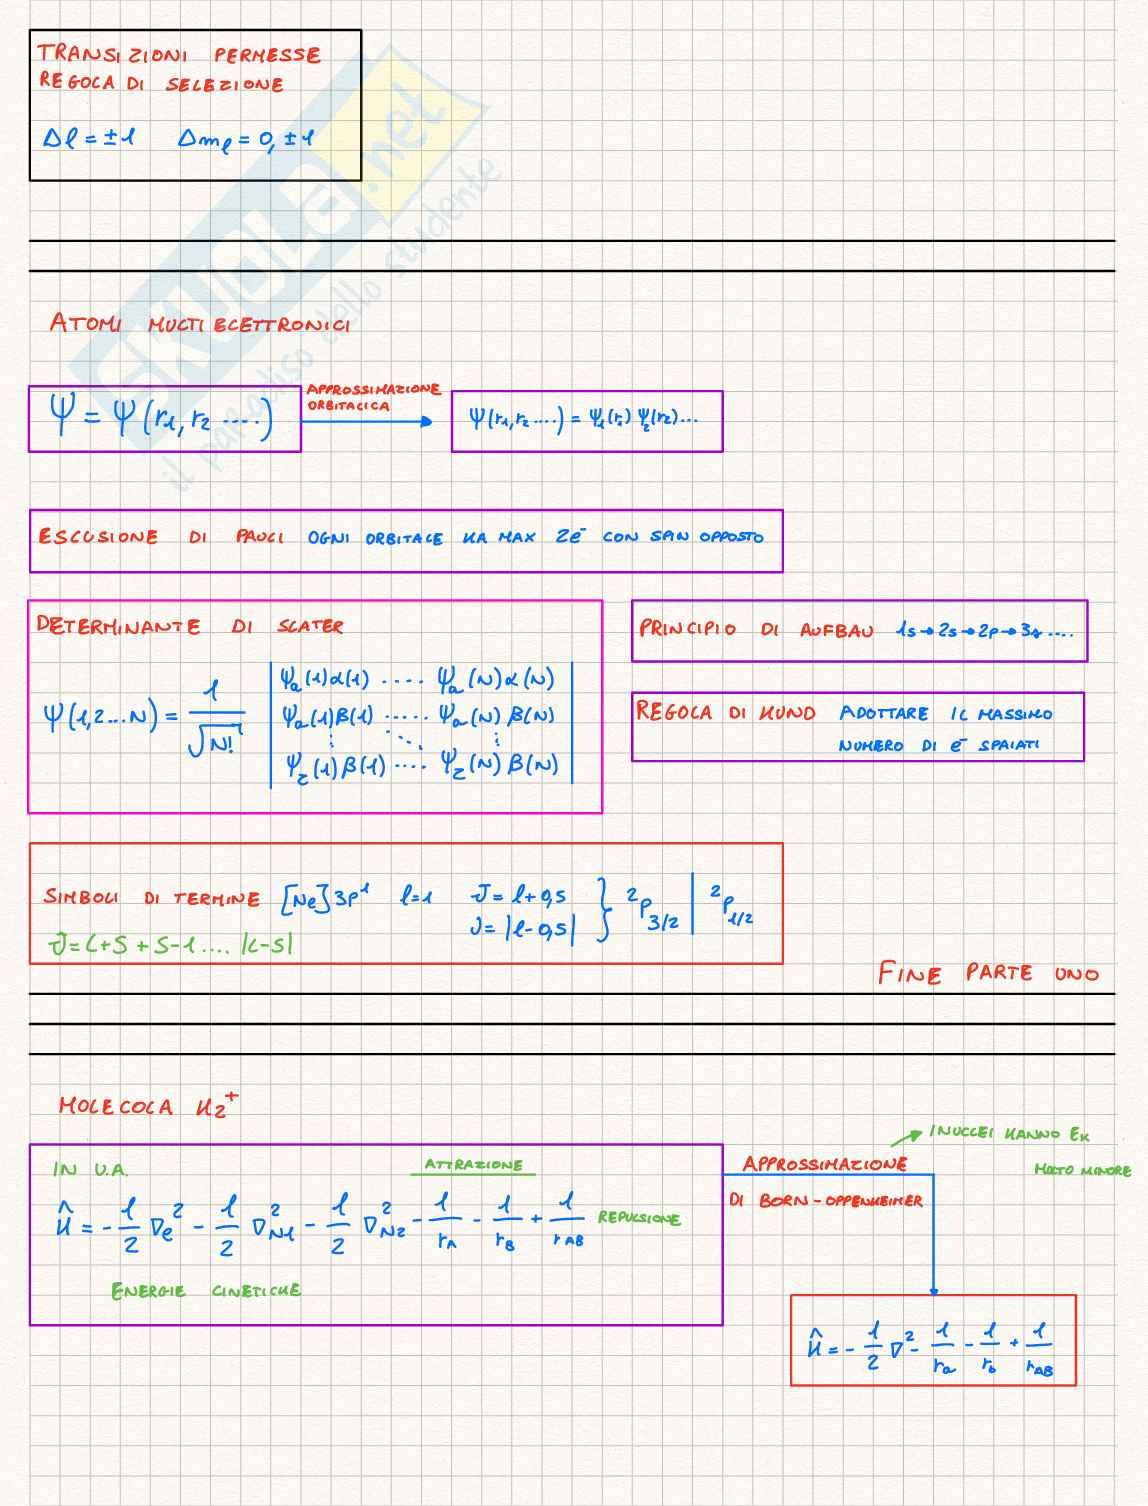 TRANSIZIONI PERMESSE
REGOLA DI SELEZIONE
Δℓ = ±1 Δmℓ = 0, ±1
SKUOLA.net
il paradiso dello studente
ATOMI MULTIELETTRONICI
Ψ = Ψ(r₁, r₂ ....)
APPROSSIMAZIONE
ORBITALICA
Ψ(r₁, r₂ ....) = Ψ₁(r₁) Ψ₂(r₂) ...
ESCLUSIONE DI PAULI OGNI ORBITALE HA MAX 2e⁻ CON SPIN OPPOSTO
DETERMINANTE DI SLATER
Ψ(1,2...N) = 1/√N! | Ψa(1)α(1) .... Ψa(N)α(N) |
| Ψa(1)β(1) ..... Ψa(N)β(N) |
| Ψz(1)β(1) .... Ψz(N)β(N) |
PRINCIPIO DI AUFBAU 1s→2s→2p→3s ....
REGOLA DI HUND ADOTTARE IL MASSIMO
NUMERO DI e⁻ SPAIATI
SIMBOLI DI TERMINE [Ne]3p¹ ℓ=1 J = ℓ+0,5 } ²P₃/₂ | ²P₁/₂
J = |ℓ-0,5|
J = L+S + S-1 .... |L-S|
FINE PARTE UNO
MOLECOLA H₂⁺
IN U.A. ATTRAZIONE
Ĥ = -1/2 ∇e² - 1/2 ∇N1² - 1/2 ∇N2² - 1/rA - 1/rB + 1/rAB REPULSIONE
ENERGIE CINETICHE
I NUCLEI HANNO Ek
MOLTO MINORE
APPROSSIMAZIONE
DI BORN-OPPENHEIMER
Ĥ = -1/2 ∇² - 1/ra - 1/rb + 1/rAB